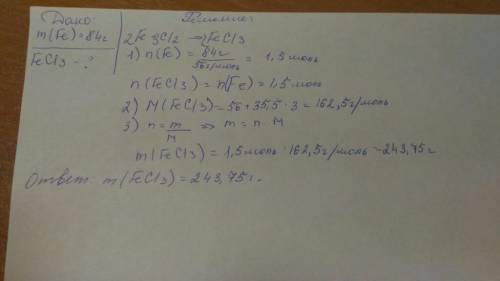 Дано:
m(Fe)=84г
FeCl3 - ?
Решение:
2Fe 3Cl2 → 2FeCl3
1) n(Fe) = 84г / 56г/моль = 1,5 моль
n(FeCl3) = n(Fe) = 1,5 моль
2) M(FeCl3) = 56 + 35,5 · 3 = 162,5г/моль
3) n = m/M => m = n · M
m(FeCl3) = 1,5 моль · 162,5г/моль = 243,75 г
Ответ: m(FeCl3) = 243,75 г.